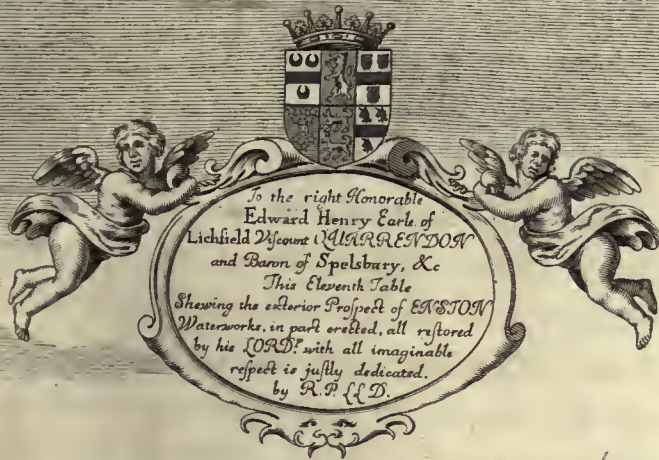 To the right Honorable
Edward Henry Earle of
Lichfield Viscount QUARRENDON
and Baron of Spelsbury, &c
This Eleventh Table
Shewing the exterior Prospect of ENSTON
Waterworks, in part erected, all restored
by his LORDP. with all imaginable
respect is justly dedicated.
by R.P. LLD.